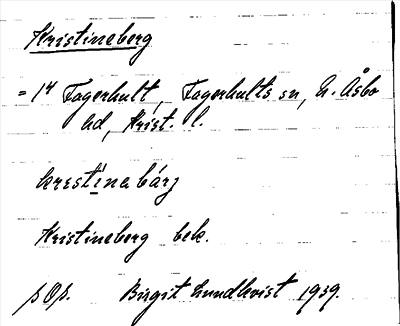 Kristineberg
= 14 Fagerhult, Fagerhults sn, N. Åsbo
hd, Krist. l.
krestinabárj
Kristineberg bek.
Birgit Lundkvist 1939.